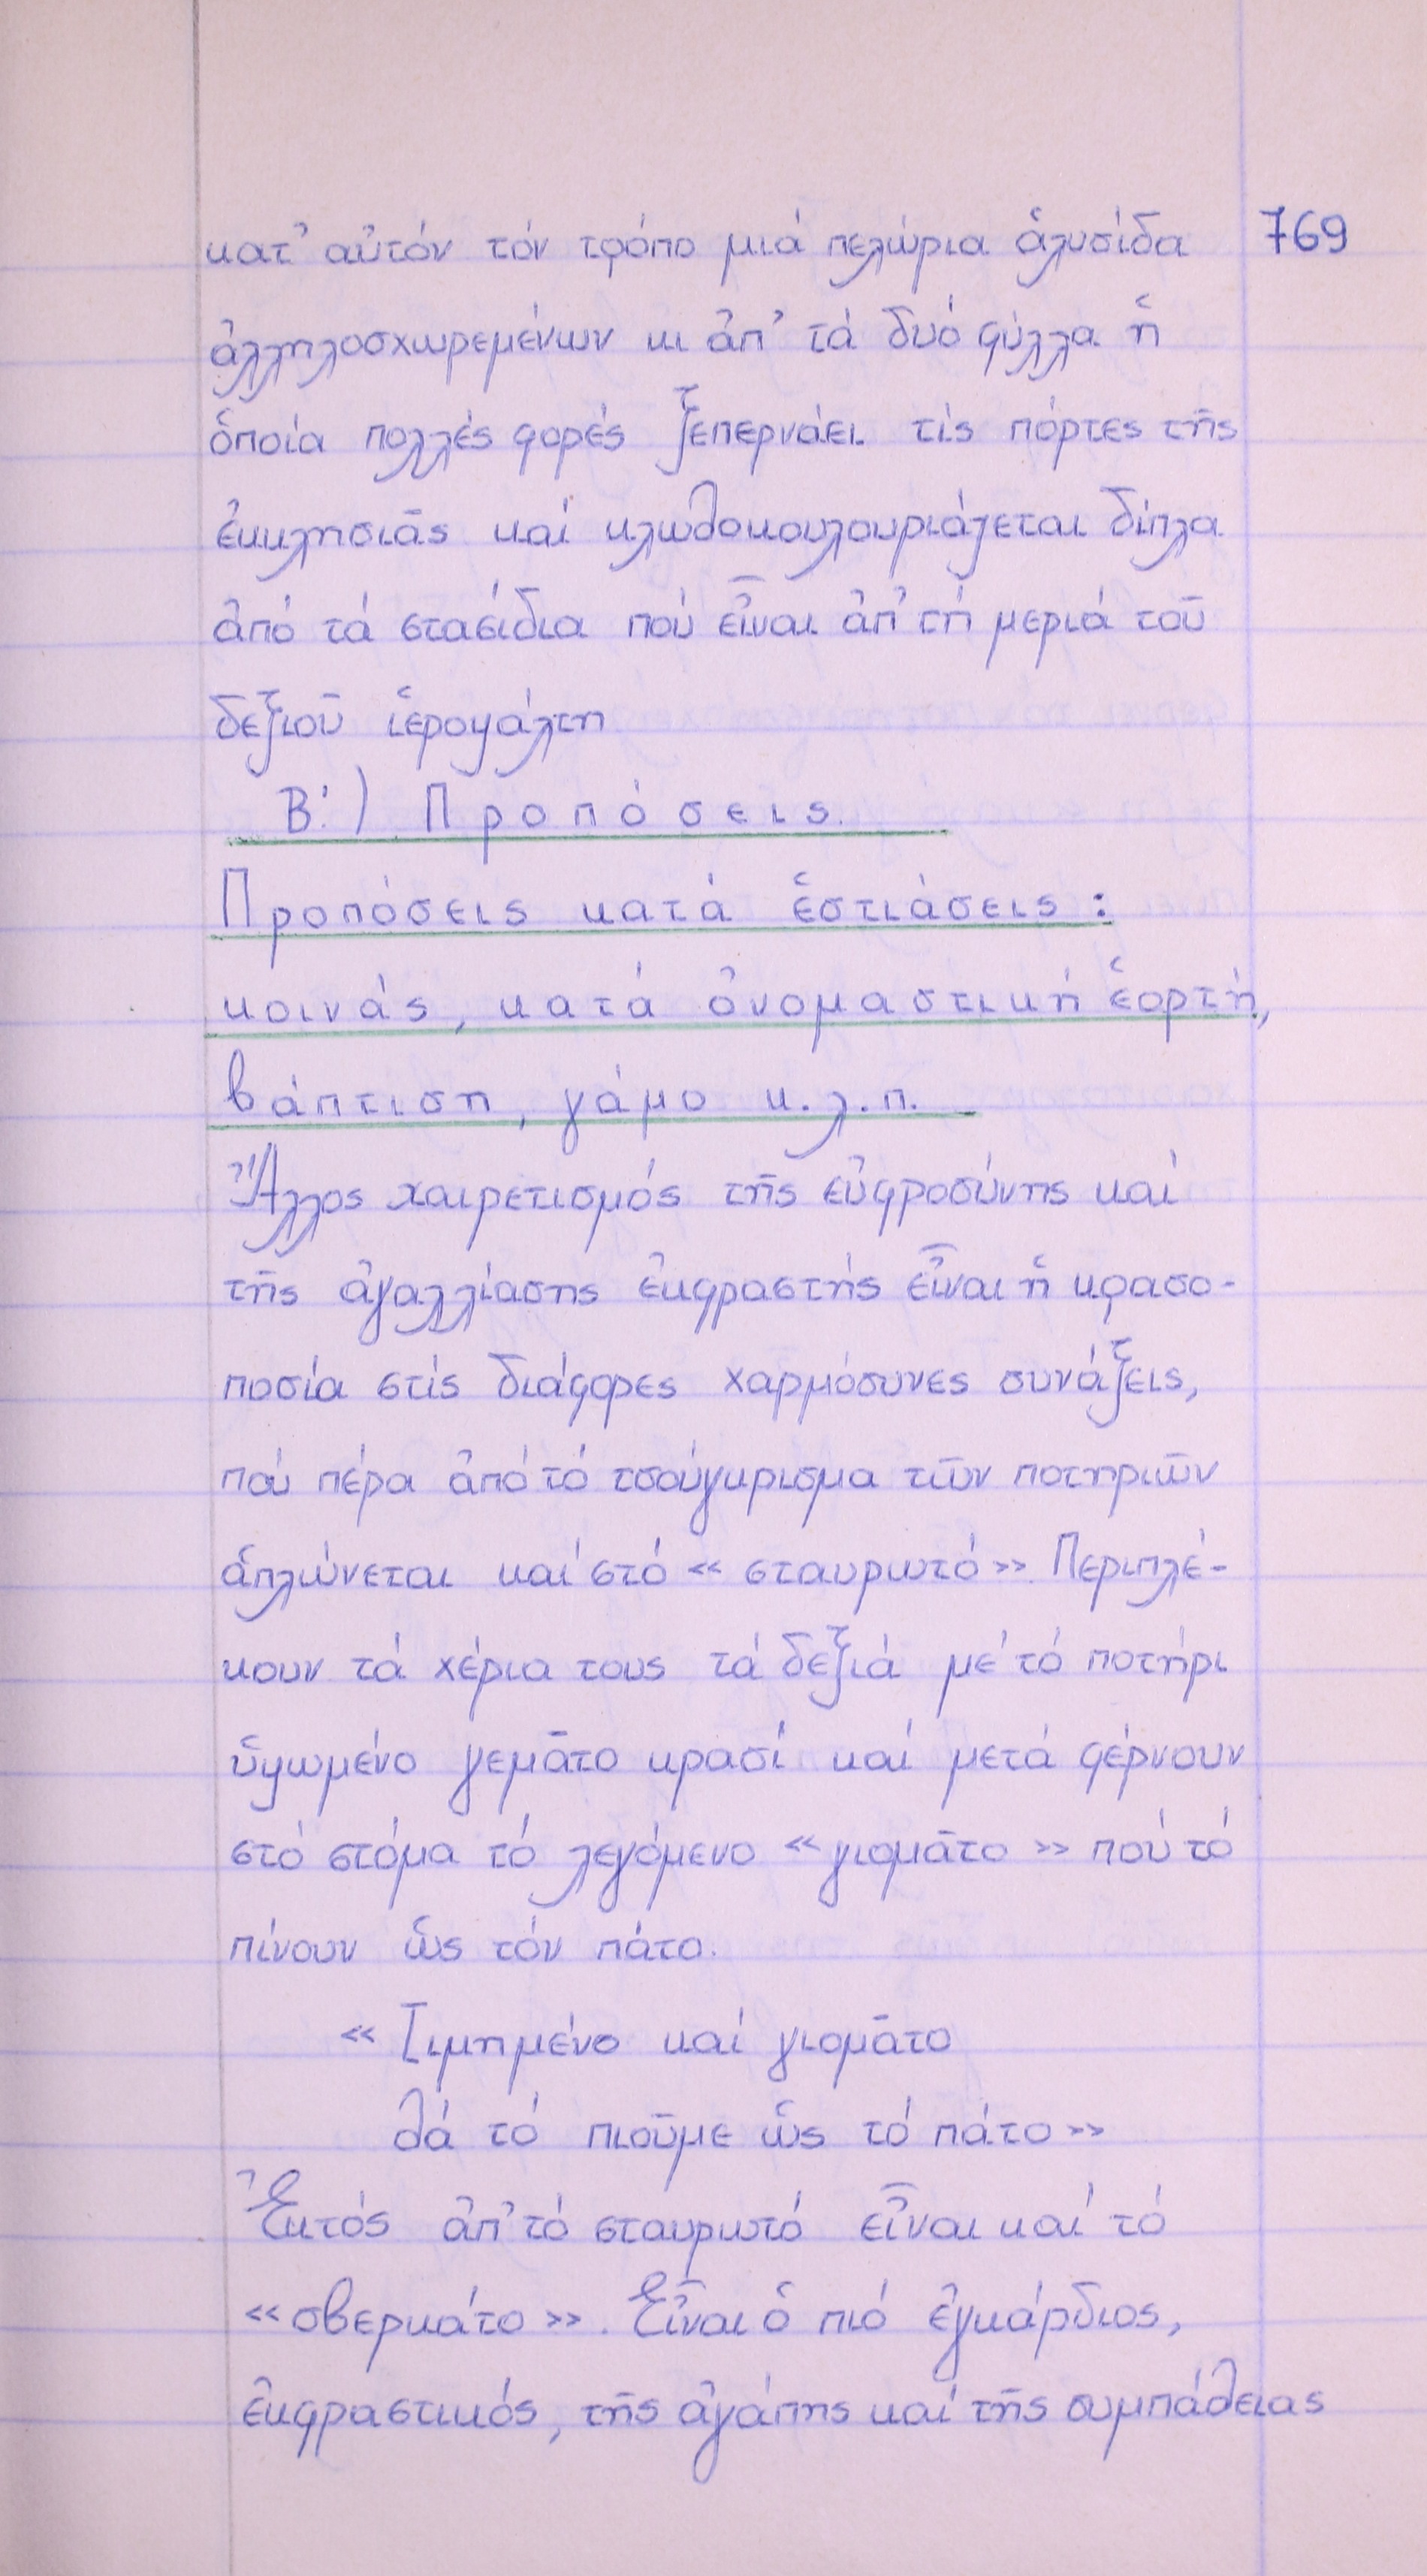 κατ' αὐτόν τόν τρόπο μιά πελώρια ἁλυσίδα 769
ἀλληλοσχωρεμένων κι ἀπ' τά δυό φύλλα ἡ
ὁποία πολλές φορές ξεπερνάει τίς πόρτες τῆς
ἐκκλησιᾶς καί κλωθοκουλουριάζεται δίπλα
ἀπό τά στασίδια πού εἶναι ἀπ' τή μεριά τοῦ
δεξιοῦ ἱεροψάλτη
Β'.) Προπόσεις.
Προπόσεις κατά ἑστιάσεις:
κοινάς, κατά ὀνομαστική ἑορτή,
βάπτιση, γάμο κ.λ.π.
Ἄλλος χαιρετισμός τῆς εὐφροσύνης καί
τῆς ἀγαλλίασης ἐκφραστής εἶναι ἡ κρασο-
ποσία στίς διάφορες χαρμόσυνες συνάξεις,
πού πέρα ἀπό τό τσούγκρισμα τῶν ποτηριῶν
ἁπλώνεται καί στό «σταυρωτό». Περιπλέ-
κουν τά χέρια τους τά δεξιά μέ τό ποτήρι
ὑψωμένο γεμᾶτο κρασί καί μετά φέρνουν
στό στόμα τό λεγόμενο «γιομᾶτο» πού τό
πίνουν ὥς τόν πάτο.
«Τιμημένο καί γιομᾶτο
θά τό πιοῦμε ὥς τό πάτο»
Ἐκτός ἀπ' τό σταυρωτό εἶναι καί τό
«σβερκάτο». Εἶναι ὁ πιό ἐγκάρδιος,
ἐκφραστικός, τῆς ἀγάπης καί τῆς συμπάθειας